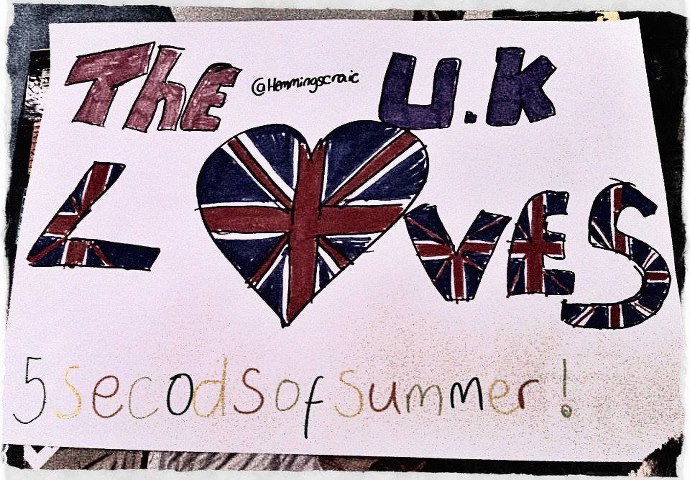 The @Hemmingscraic U.K
LOVES
5 secods of summer!